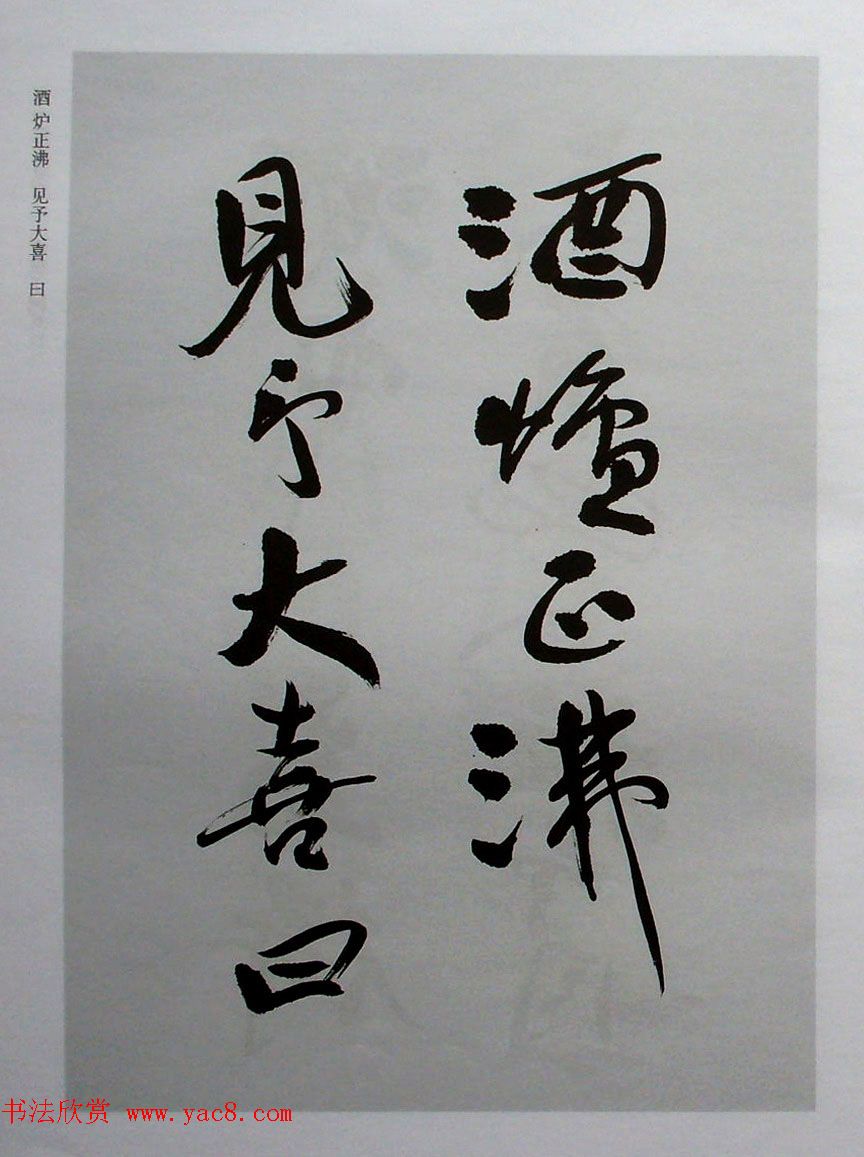 酒爐正沸
見予大喜曰
酒炉正沸 见予大喜 曰
书法欣赏 www.yac8.com